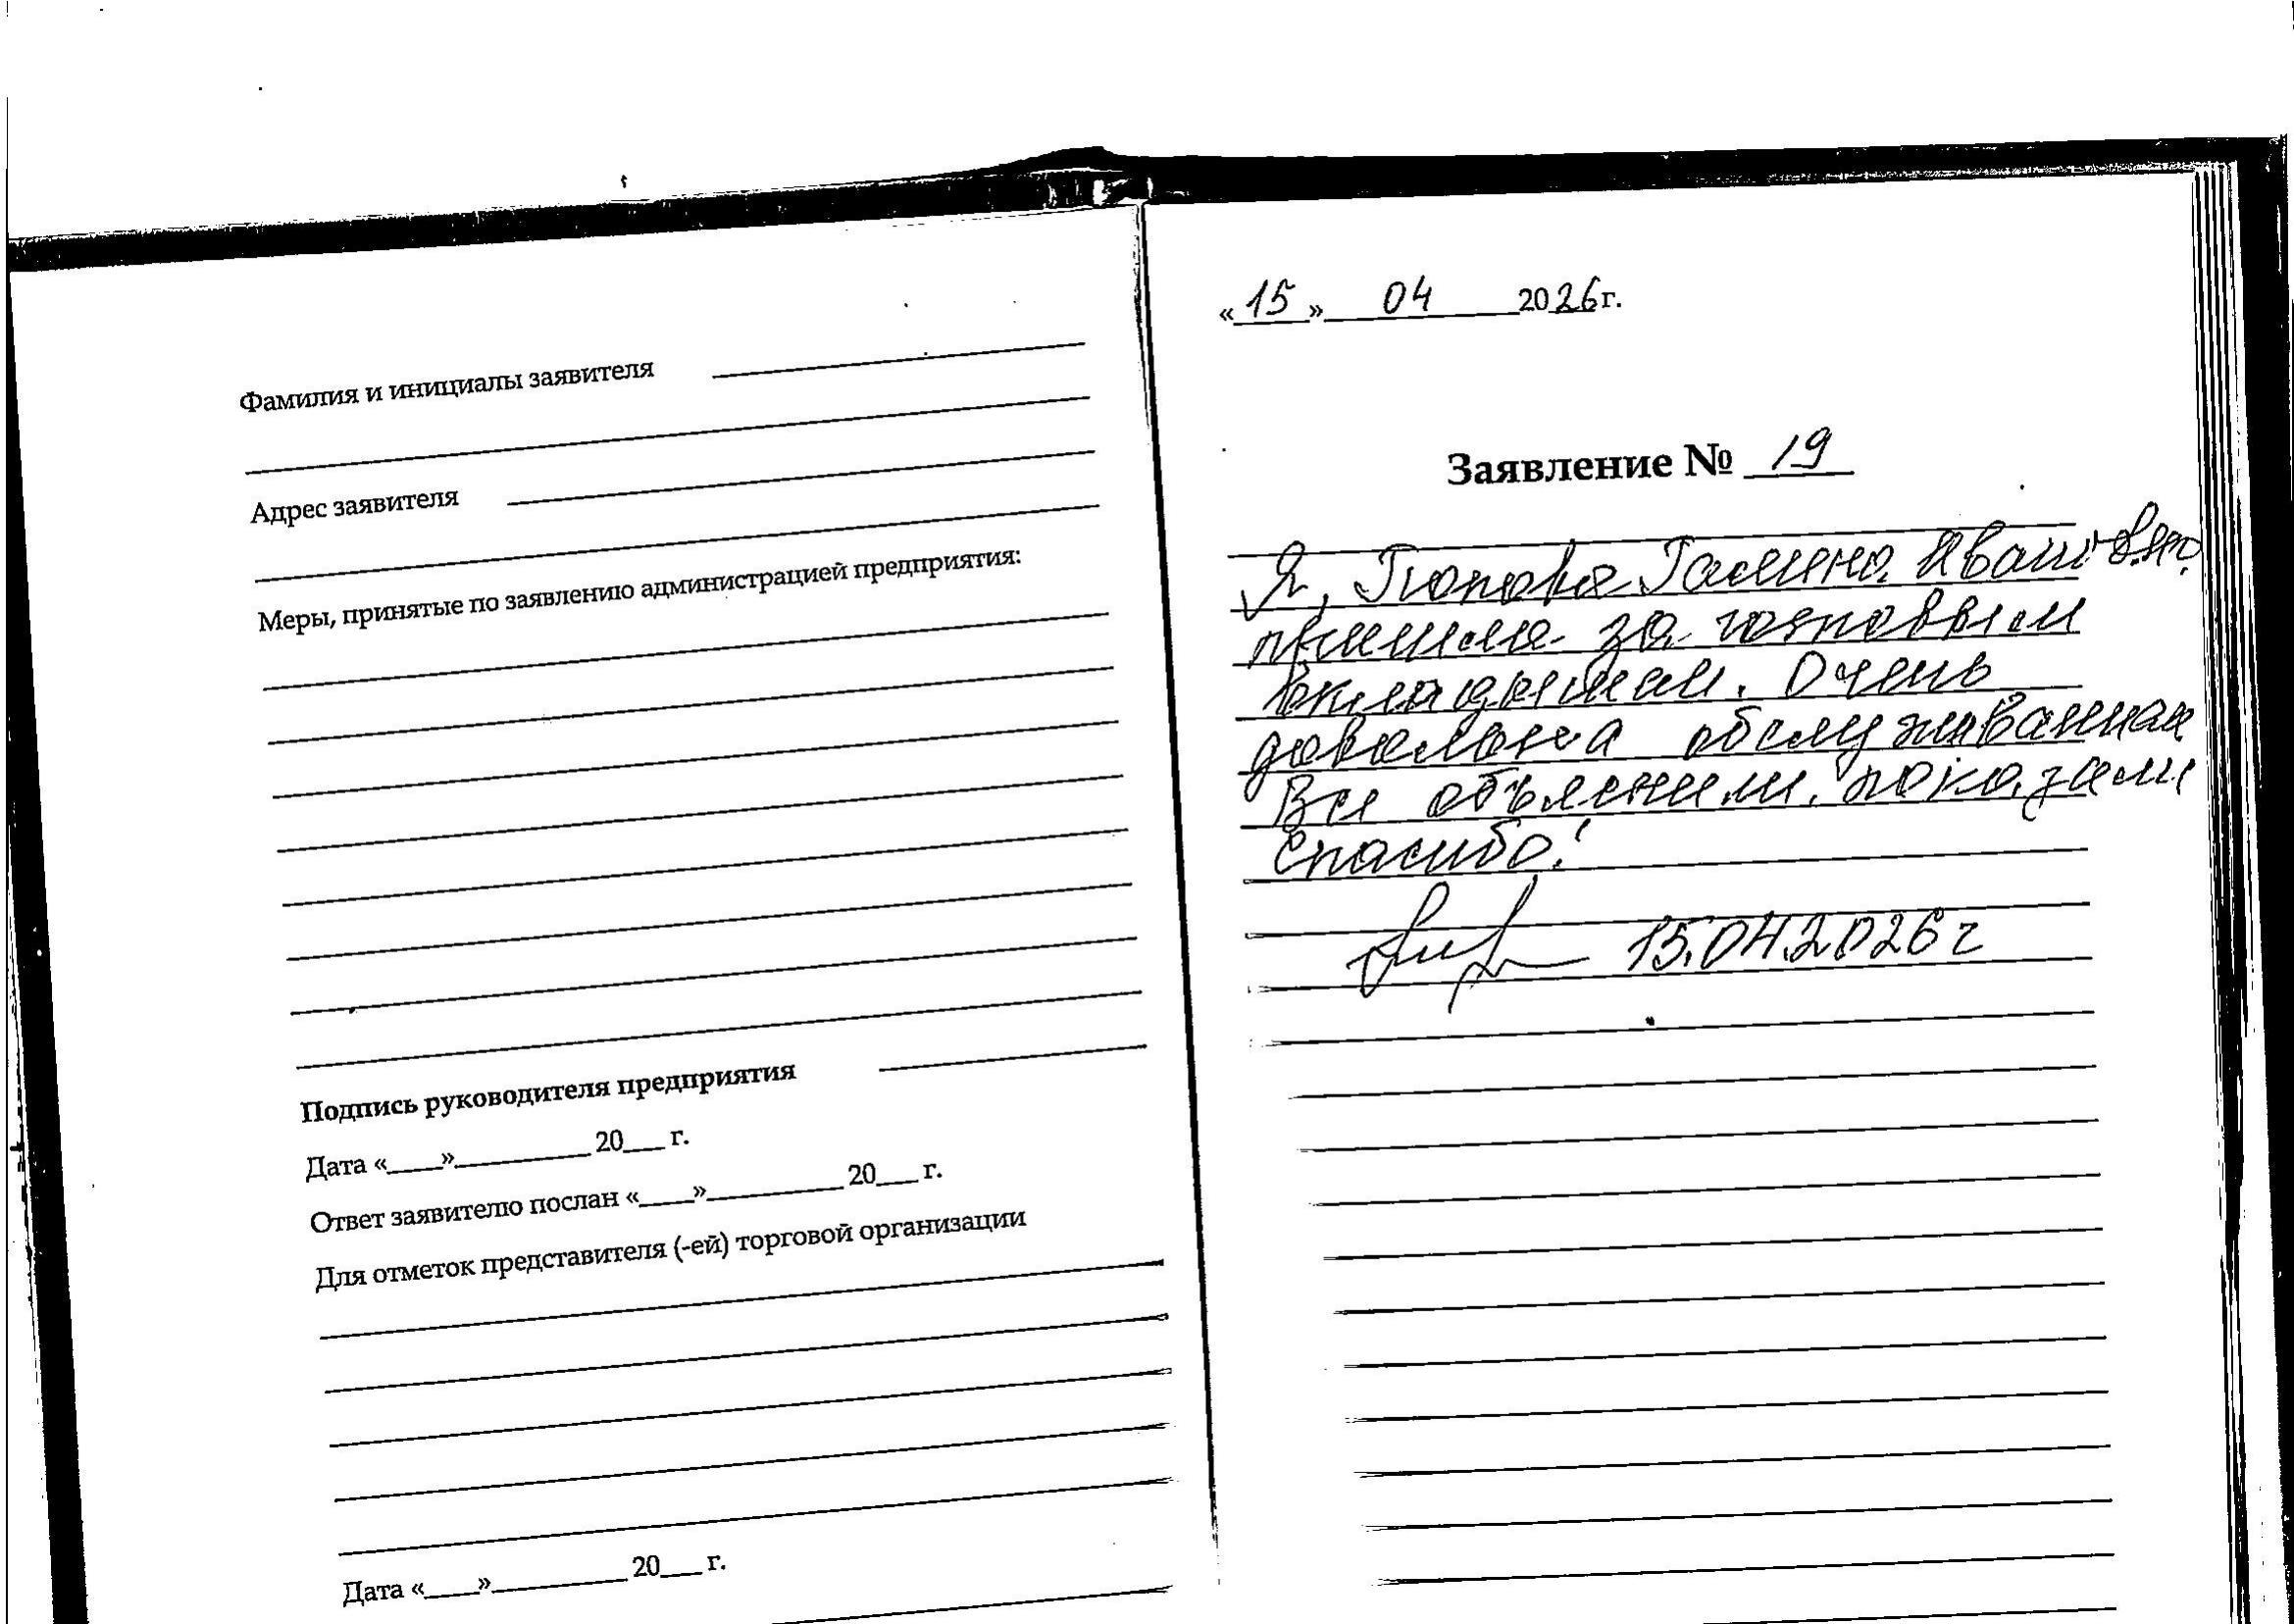 Фамилия и инициалы заявителя
Адрес заявителя
Меры, принятые по заявлению администрацией предприятия:
Подпись руководителя предприятия
Дата «____»__________ 20___ г.
Ответ заявителю послан «____»__________ 20___ г.
Для отметок представителя (-ей) торговой организации
Дата «____»__________ 20___ г.
«15» 04 2026г.
Заявление № 19
Я, Попова Галина Ивановна
пришла за
Очень
довольна обслуживанием
Все объяснили, показали
Спасибо!
15.04.2026 г